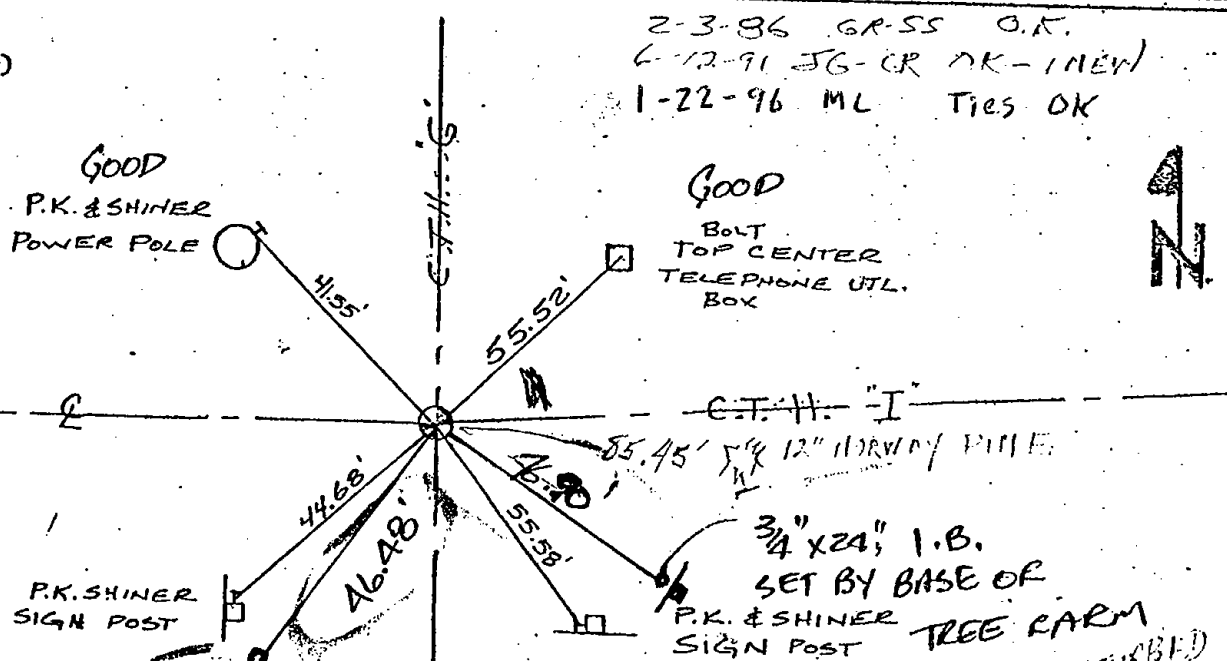 2-3-86 GR-SS O.K.
6-12-91 JG-CR OK-(NEW)
1-22-96 ML Ties OK
GOOD
P.K. & SHINER
POWER POLE
C.T.H. "G"
GOOD
BOLT
TOP CENTER
TELEPHONE UTL.
BOX
N
41.55'
55.52'
℄
C.T.H. "I"
85.45' 12" NORWAY PINE
44.68'
46.48'
55.58'
3/4"X24" I.B.
SET BY BASE OF
TREE FARM
P.K. SHINER
SIGN POST
P.K. & SHINER
SIGN POST